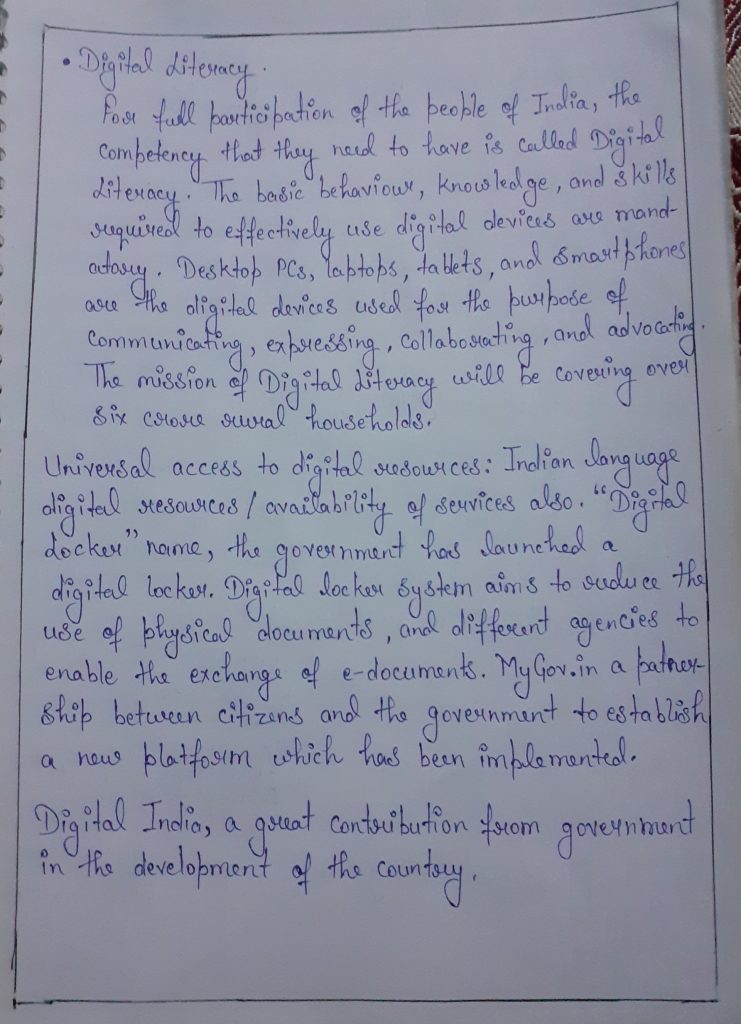 • Digital Literacy.
For full participation of the people of India, the
competency that they need to have is called Digital
Literacy. The basic behaviour, knowledge, and skills
required to effectively use digital devices are mand-
atory. Desktop PCs, laptops, tablets, and smartphones
are the digital devices used for the purpose of
communicating, expressing, collaborating, and advocating.
The mission of Digital Literacy will be covering over
six crore rural households.
Universal access to digital resources: Indian language
digital resources / availability of services also. "Digital
Locker" name, the government has launched a
digital locker. Digital locker system aims to reduce the
use of physical documents, and different agencies to
enable the exchange of e-documents. MyGov.in a patner-
ship between citizens and the government to establish
a new platform which has been implemented.
Digital India, a great contribution from government
in the development of the country.